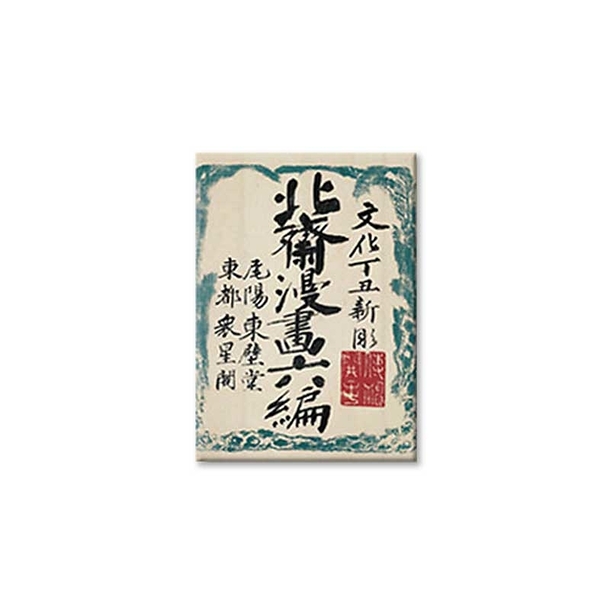 文化丁丑新彫
北齋漫畫六編
尾陽東壁堂
東都衆星閣